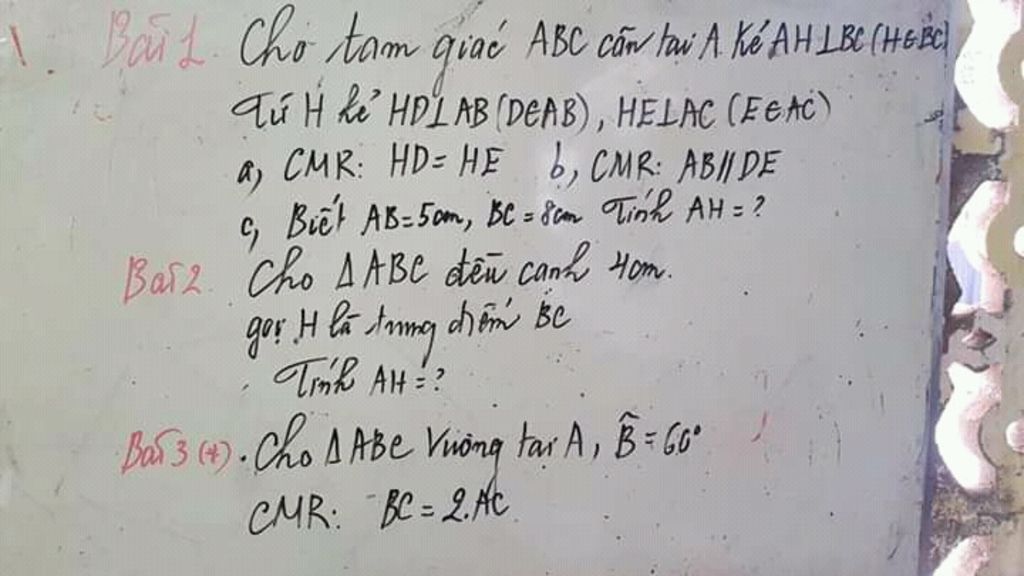 Bài 1. Cho tam giác ABC cân tại A. Kẻ AH⊥BC (H∈BC)
Từ H kẻ HD⊥AB (D∈AB), HE⊥AC (E∈AC)
a, CMR: HD = HE b, CMR: AB//DE
c, Biết AB=5cm, BC=8cm Tính AH=?
Bài 2. Cho ΔABC đều cạnh 4cm.
gọi H là trung điểm BC
Tính AH=?
Bài 3(*). Cho ΔABC Vuông tại A, B̂=60°
CMR: BC = 2.AC